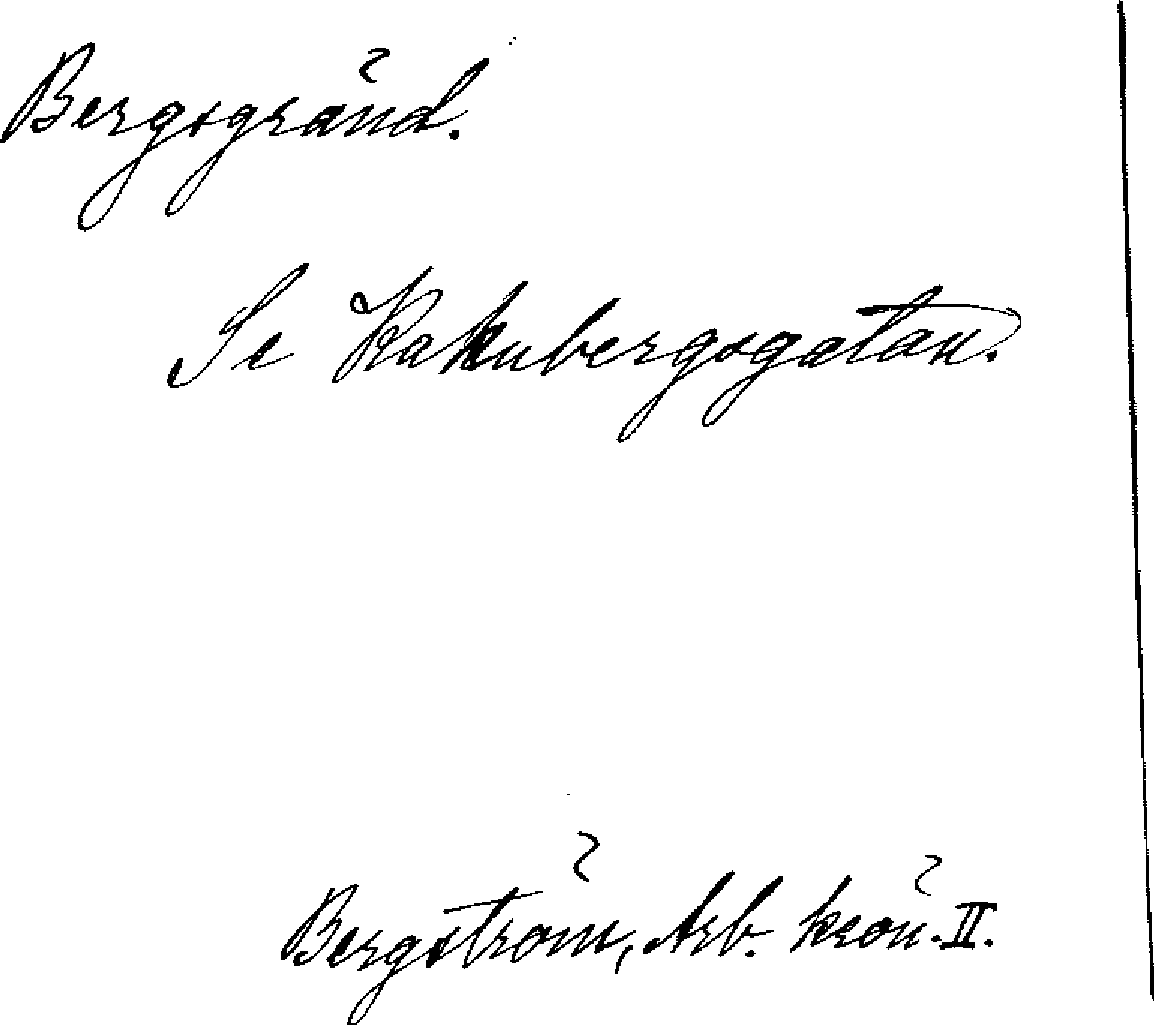 Bergsgränd.
Se Kakubergsgatan.
Bergström, Arb. krön. II.